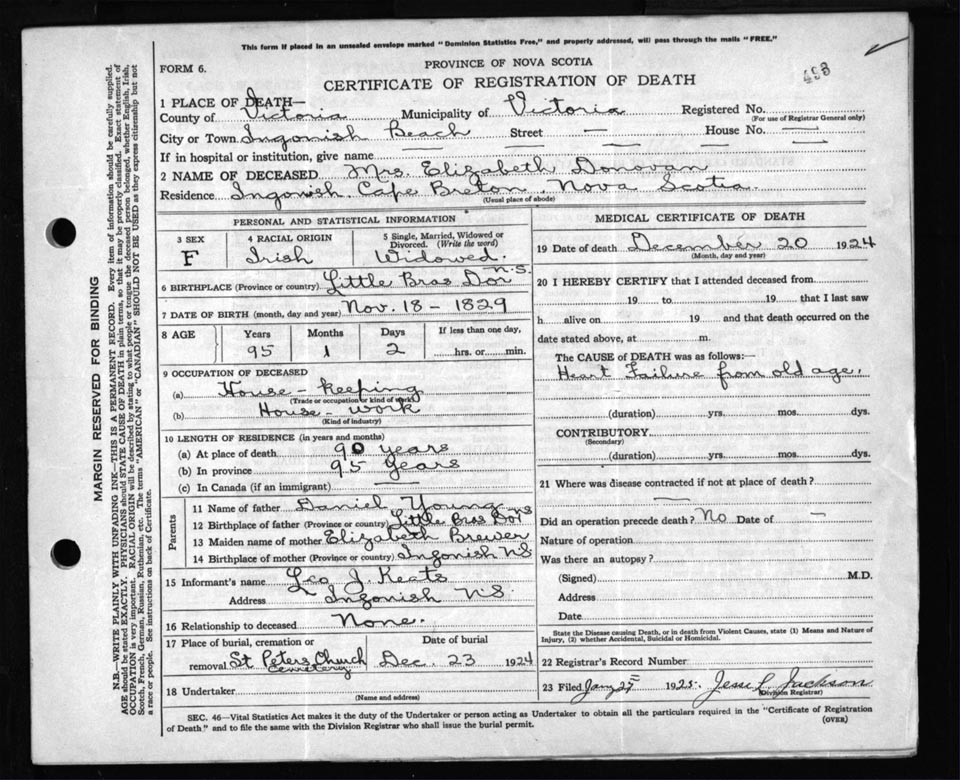 This form if placed in an unsealed envelope marked "Dominion Statistics Free," and properly addressed, will pass through the mails "FREE."
FORM 6.
PROVINCE OF NOVA SCOTIA
493
CERTIFICATE OF REGISTRATION OF DEATH
1 PLACE OF DEATH—
County of Victoria Municipality of Victoria Registered No.
(For use of Registrar General only)
City or Town Ingonish Beach Street — House No. —
If in hospital or institution, give name
2 NAME OF DECEASED Mrs. Elizabeth Donovan
Residence Ingonish, Cape Breton, Nova Scotia.
(Usual place of abode)
PERSONAL AND STATISTICAL INFORMATION
3 SEX 4 RACIAL ORIGIN 5 Single, Married, Widowed or Divorced. (Write the word)
F Irish Widowed.
6 BIRTHPLACE (Province or country) Little Bras Dor N.S.
7 DATE OF BIRTH (month, day and year) Nov. 18 - 1829
8 AGE Years Months Days If less than one day,
95 1 2 hrs. or min.
9 OCCUPATION OF DECEASED
(a) House-keeping
(Trade or occupation or kind of work)
(b) House-work
(Kind of industry)
10 LENGTH OF RESIDENCE (in years and months)
(a) At place of death 90 years
(b) In province 95 years
(c) In Canada (if an immigrant) —
Parents
11 Name of father Daniel Young
12 Birthplace of father (Province or country) Little Bras Dor NS
13 Maiden name of mother Elizabeth Brewer
14 Birthplace of mother (Province or country) Ingonish NS
15 Informant's name Leo J. Keats
Address Ingonish N.S.
16 Relationship to deceased None.
17 Place of burial, cremation or Date of burial
removal St Peters Church Cemetery Dec. 23 1924
18 Undertaker
(Name and address)
MEDICAL CERTIFICATE OF DEATH
19 Date of death December 20 1924
(Month, day and year)
20 I HEREBY CERTIFY that I attended deceased from
19 to 19 that I last saw
h alive on 19 and that death occurred on the
date stated above, at m.
The CAUSE OF DEATH was as follows:—
Heart Failure from old age.
(duration) yrs. mos. dys.
CONTRIBUTORY
(Secondary)
(duration) yrs. mos. dys.
21 Where was disease contracted if not at place of death?
—
Did an operation precede death? No Date of —
Nature of operation
Was there an autopsy?
(Signed) M.D.
Address
Date
State the Disease causing Death, or in death from Violent Causes, state (1) Means and Nature of
Injury, (2) whether Accidental, Suicidal or Homicidal.
22 Registrar's Record Number
23 Filed Jany 27 1925. Jackson
(Division Registrar)
SEC. 46—Vital Statistics Act makes it the duty of the Undertaker or person acting as Undertaker to obtain all the particulars required in the "Certificate of Registration
of Death" and to file the same with the Division Registrar who shall issue the burial permit.
(OVER)
MARGIN RESERVED FOR BINDING
N.B.—WRITE PLAINLY WITH UNFADING INK—THIS IS A PERMANENT RECORD. Every item of information should be carefully supplied.
AGE should be stated EXACTLY. PHYSICIANS should STATE CAUSE OF DEATH in plain terms, so that it may be properly classified. Exact statement of
OCCUPATION is very important. RACIAL ORIGIN will be described by stating to what people or tongue the deceased person belonged, whether English, Irish,
Scotch, French, German, Russian, Ruthenian, etc. The terms "AMERICAN" or "CANADIAN" SHOULD NOT BE USED as they express citizenship but not
a race or people. See instructions on back of Certificate.